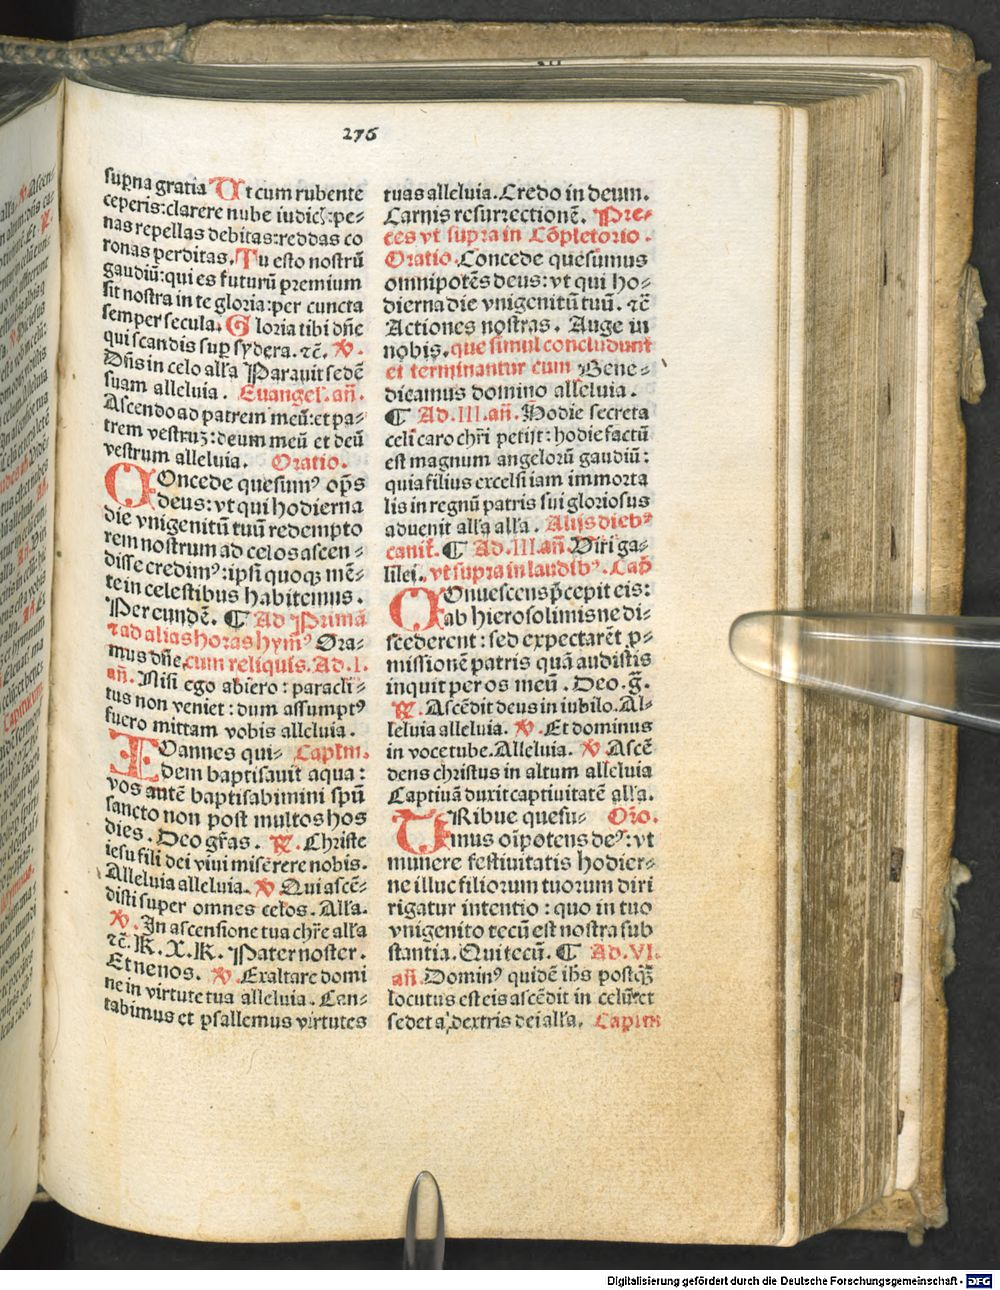 276
supna gratia Ut cum rubente
ceperis: clarere nube iudicꝭ: pe⸗
nas repellas debitas: reddas co
ronas perditas. Tu esto nostrũ
gaudiũ: qui es futurũ premium
sit nostra in te gloria: per cuncta
semper secula. Gloria tibi dñe
qui scandis sup̱ sydera. ⁊c̃. ℣.
Dñs in celo alľa Parauit sedẽ
suam alleluia. Euangeľ. añ.
Ascendo ad patrem meũ: et pa⸗
trem vestruꝫ: deum meũ et deũ
vestrum alleluia. Oratio.
COncede quesumꝰ op̃s
deus: vt qui hodierna
die vnigenitũ tuũ redempto
rem nostrum ad celos ascen⸗
disse credimꝰ: ipsi quoqꝫ mẽ⸗
te in celestibus habitemus.
Per eundẽ. ¶ Ad Primã
⁊ ad alias horas hymꝰ Ora⸗
mus dñe, cum reliquis. Ad .I.
añ. Nisi ego abiero: paracli⸗
tus non veniet: dum assumptꝰ
fuero mittam vobis alleluia.
IOannes qui⸗ Capľm.
dem baptisauit aqua:
vos autẽ baptisabimini spũ
sancto non post multos hos
dies. Deo gr̃as. ℟. Christe
iesu fili dei viui miserere nobis.
Alleluia alleluia. ℣ Qui ascẽ⸗
disti super omnes celos. Alľa.
℣. In ascensione tua chr̃e alľa
⁊c̃. K. X. K. Pater noster.
Et ne nos. ℣. Exaltare domi
ne in virtute tua alleluia. Can⸗
tabimus et psallemus virtutes
tuas alleluia. Credo in deum.
Carnis resurrectionẽ. Pre⸗
ces vt supra in Cõpletorio.
Oratio. Concede quesumus
omnipotẽs deus: vt qui ho⸗
dierna die vnigenitũ tuũ. ⁊c̃
Actiones nostras. Auge in
nobis. que simul concludunt
et terminantur cum Bene⸗
dicamus domino alleluia.
¶ Ad .III. añ. Hodie secreta
celi caro chr̃i petijt: hodie factũ
est magnum angelorũ gaudiũ:
quia filius excelsi iam immorta
lis in regnũ patris sui gloriosus
aduenit alľa alľa. Alijs diebꝰ
canit̃. ¶ Ad .III. añ. Viri ga⸗
lilei. vt supra in laudibꝰ. Cap̃
COnuescens p̃cepit eis:
ab hierosolimis ne di⸗
scederent: sed expectarẽt ꝓ⸗
missionẽ patris quã audistis
inquit per os meũ. Deo .g̃.
℟. Ascẽdit deus in iubilo. Al⸗
leluia alleluia. ℣. Et dominus
in voce tube. Alleluia. ℣ Ascẽ
dens christus in altum alleluia
Captiuã duxit captiuitatẽ alľa.
TRibue quesu⸗ Or̃o.
mus oĩpotens deꝰ: vt
munere festiuitatis hodier⸗
ne illuc filiorum tuorum diri
rigatur intentio: quo in tuo
vnigenito tecũ est nostra sub
stantia. Qui tecũ. ¶ Ad .VI.
añ. Dominꝰ quidẽ ihs̃ postqꝫ
locutus est eis ascẽdit in celũ: et
sedet a dextris dei alľa. Capľm
Digitalisierung gefördert durch die Deutsche Forschungsgemeinschaft - DFG